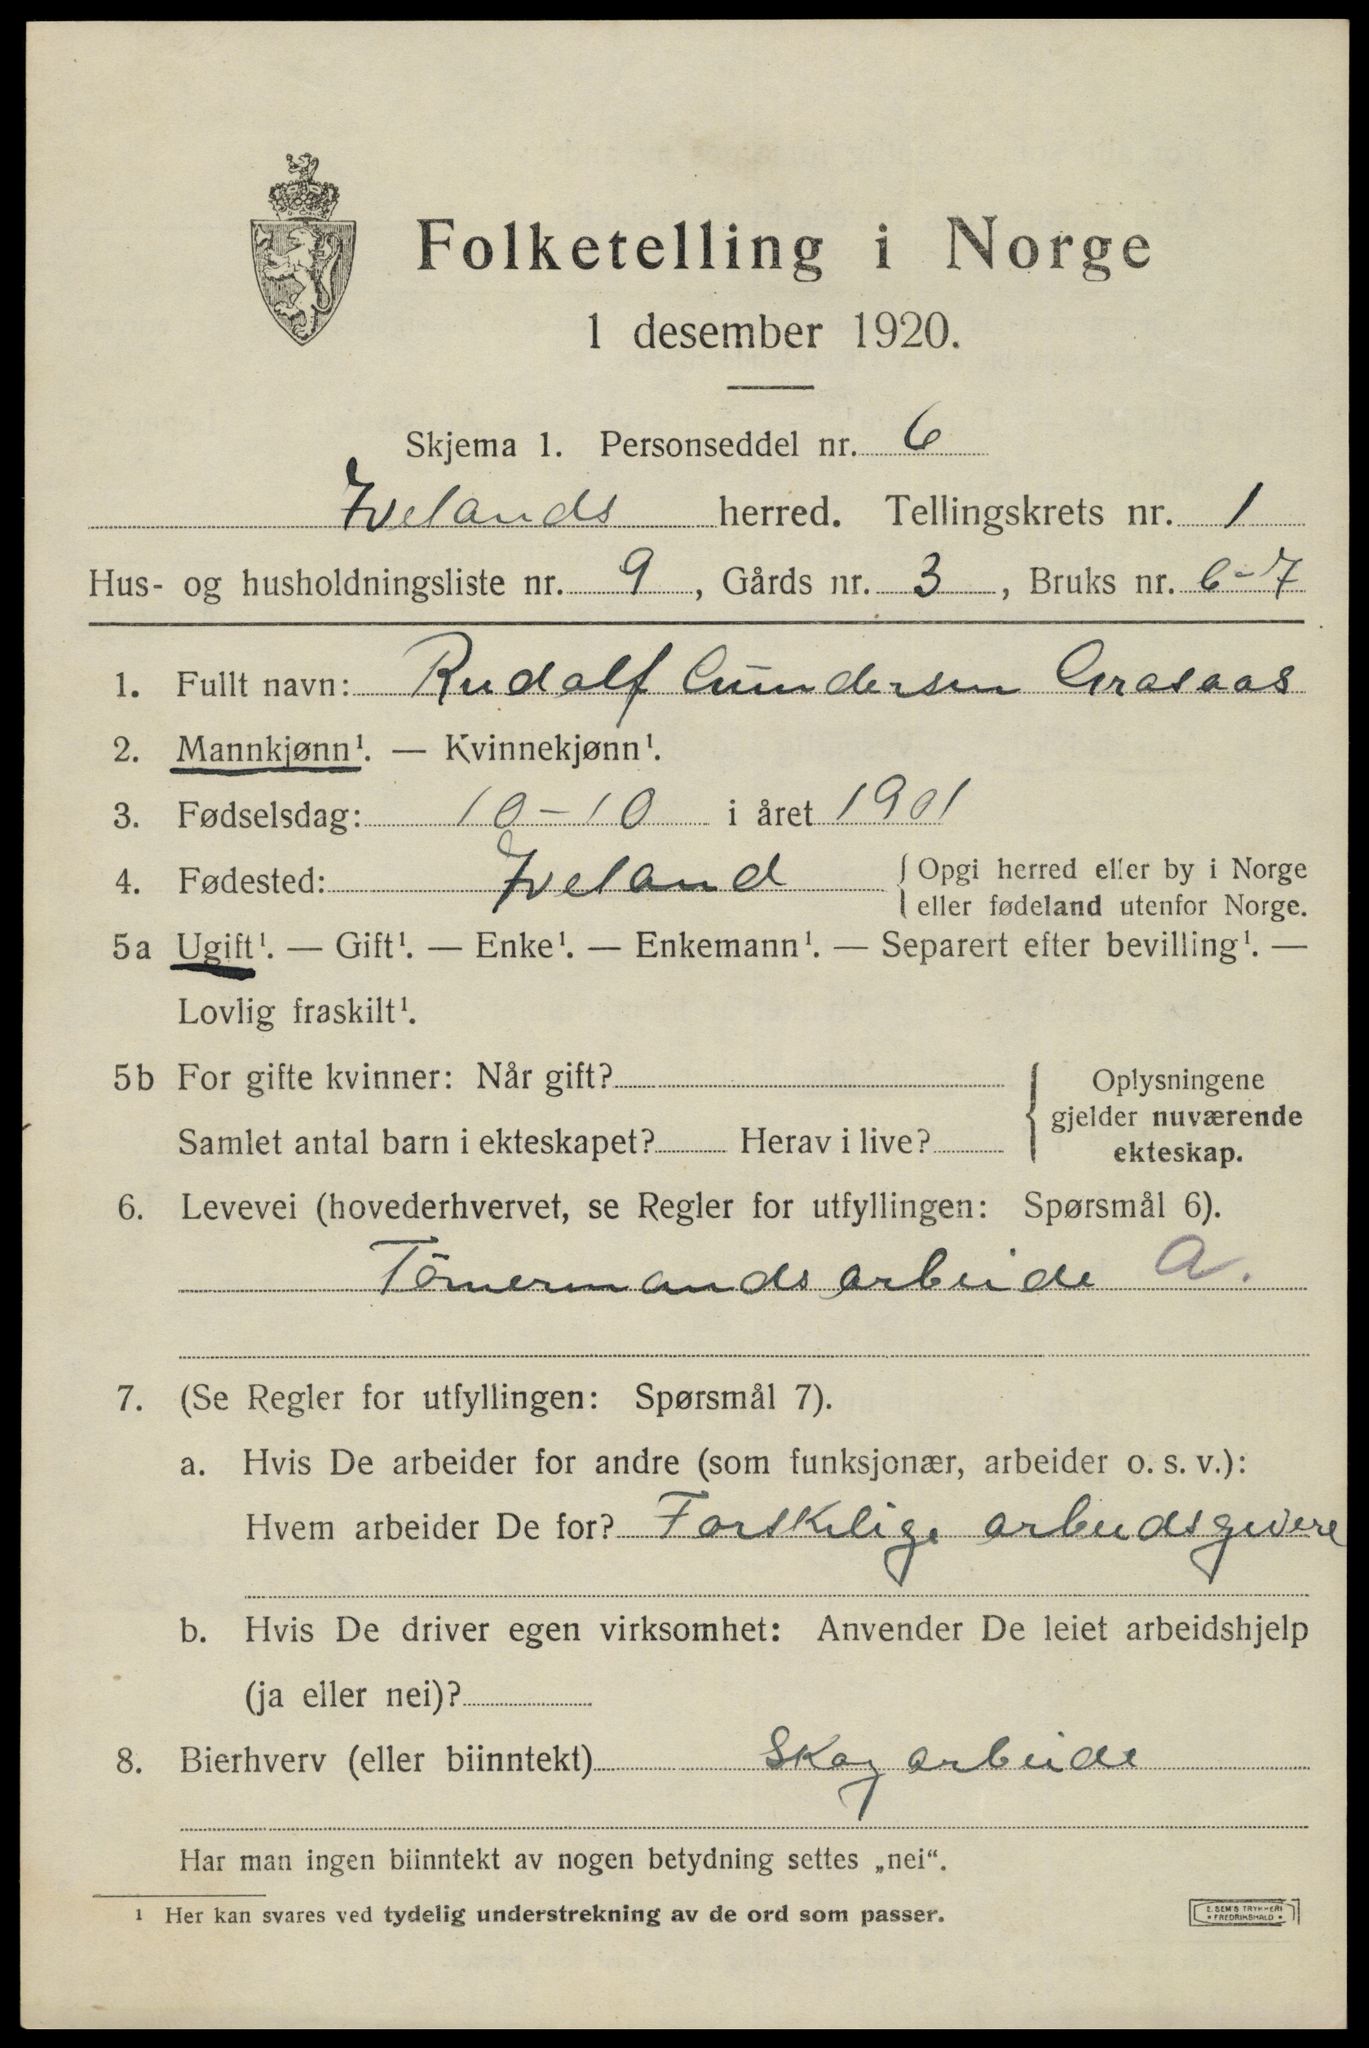 Folketelling i Norge
1 desember 1920.
Skjema 1. Personseddel nr. 6
Ivelands herred. Tellingskrets nr. 1
Hus- og husholdningsliste nr. 9, Gårds nr. 3, Bruks nr. 6-7
1. Fullt navn: Rudolf Gundersen Grosaas
2. Mannkjønn¹. — Kvinnekjønn¹.
3. Fødselsdag: 10-10 i året 1901
4. Fødested: Iveland { Opgi herred eller by i Norge
eller fødeland utenfor Norge.
5a Ugift¹. — Gift¹. — Enke¹. — Enkemann¹. — Separert efter bevilling¹. —
Lovlig fraskilt¹.
5b For gifte kvinner: Når gift?
Samlet antal barn i ekteskapet? Herav i live?
Oplysningene
gjelder nuværende
ekteskap.
6. Levevei (hovederhvervet, se Regler for utfyllingen: Spørsmål 6).
Tömermandsarbeide a.
7. (Se Regler for utfyllingen: Spørsmål 7).
a. Hvis De arbeider for andre (som funksjonær, arbeider o. s. v.):
Hvem arbeider De for? Forskelige arbeidsgivere
b. Hvis De driver egen virksomhet: Anvender De leiet arbeidshjelp
(ja eller nei)?
8. Bierhverv (eller biinntekt) Skogarbeide
Har man ingen biinntekt av nogen betydning settes „nei".
¹ Her kan svares ved tydelig understrekning av de ord som passer.
E. SEM'S TRYKKERI
• FREDRIKSHALD •